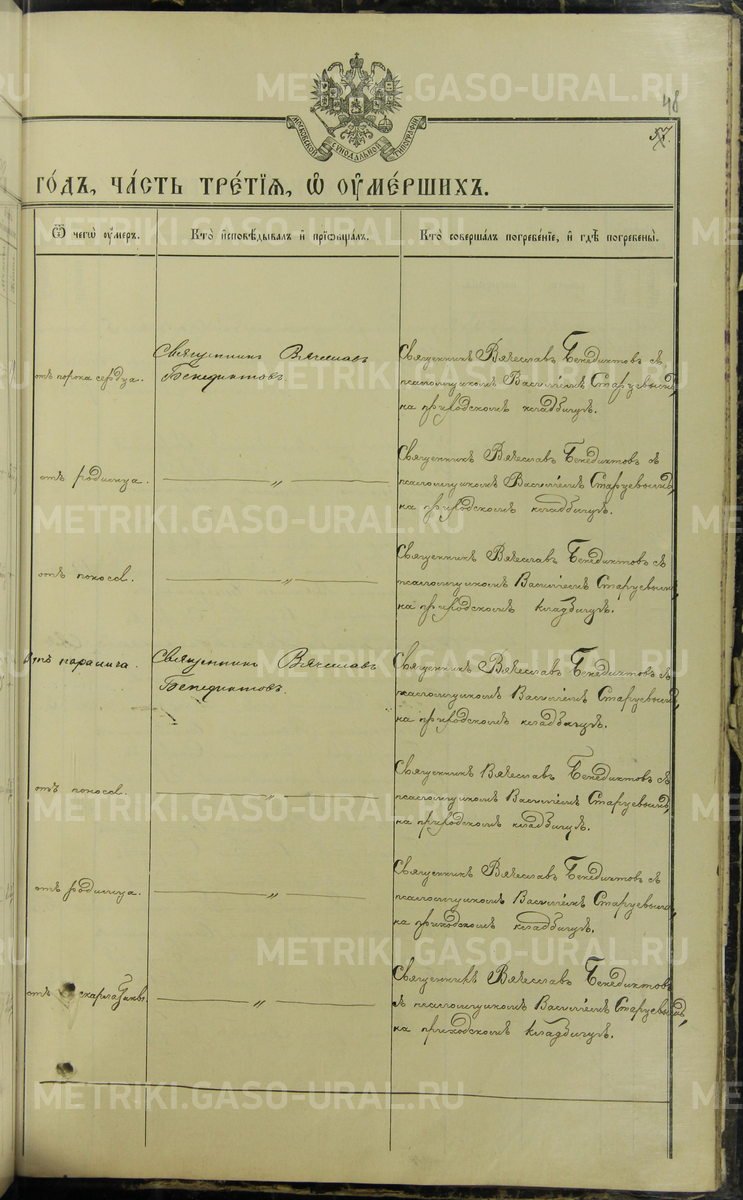 48
57.
МОСКОВСКОЙ СѴНОДАЛЬНОЙ ТИПОГРАФІИ
ГО́ДЪ, ЧА́СТЬ ТРЕ́ТІЯ, Ѡ҆ ОУ҆МЕ́РШИХЪ.
Ѿ чегѡ̀ оу҆́меръ.
Кто̀ и҆сповѣ́дывалъ и҆ прїѡбща́лъ.
Кто̀ соверша́лъ погребе́нїе, и҆ гдѣ̀ погребены̀.
отъ порока сердца.
Священникъ Вячеславъ
Бенедиктовъ.
Священникъ Вячеславъ Бенедиктовъ съ
псаломщикомъ Василіемъ Старцевымъ,
на приходскомъ кладбищѣ.
отъ родимца.
— „ —
Священникъ Вячеславъ Бенедиктовъ съ
псаломщикомъ Василіемъ Старцевымъ,
на приходскомъ кладбищѣ.
отъ поноса.
— „ —
Священникъ Вячеславъ Бенедиктовъ съ
псаломщикомъ Василіемъ Старцевымъ,
на приходскомъ кладбищѣ.
Отъ паралича.
Священникъ Вячеславъ
Бенедиктовъ.
Священникъ Вячеславъ Бенедиктовъ съ
псаломщикомъ Василіемъ Старцевымъ,
на приходскомъ кладбищѣ.
отъ поноса.
— „ —
Священникъ Вячеславъ Бенедиктовъ съ
псаломщикомъ Василіемъ Старцевымъ,
на приходскомъ кладбищѣ.
отъ родимца.
— „ —
Священникъ Вячеславъ Бенедиктовъ съ
псаломщикомъ Василіемъ Старцевымъ,
на приходскомъ кладбищѣ.
отъ скарлатины.
— „ —
Священникъ Вячеславъ Бенедиктовъ
съ псаломщикомъ Василіемъ Старцевымъ,
на приходскомъ кладбищѣ.
METRIKI.GASO-URAL.RU